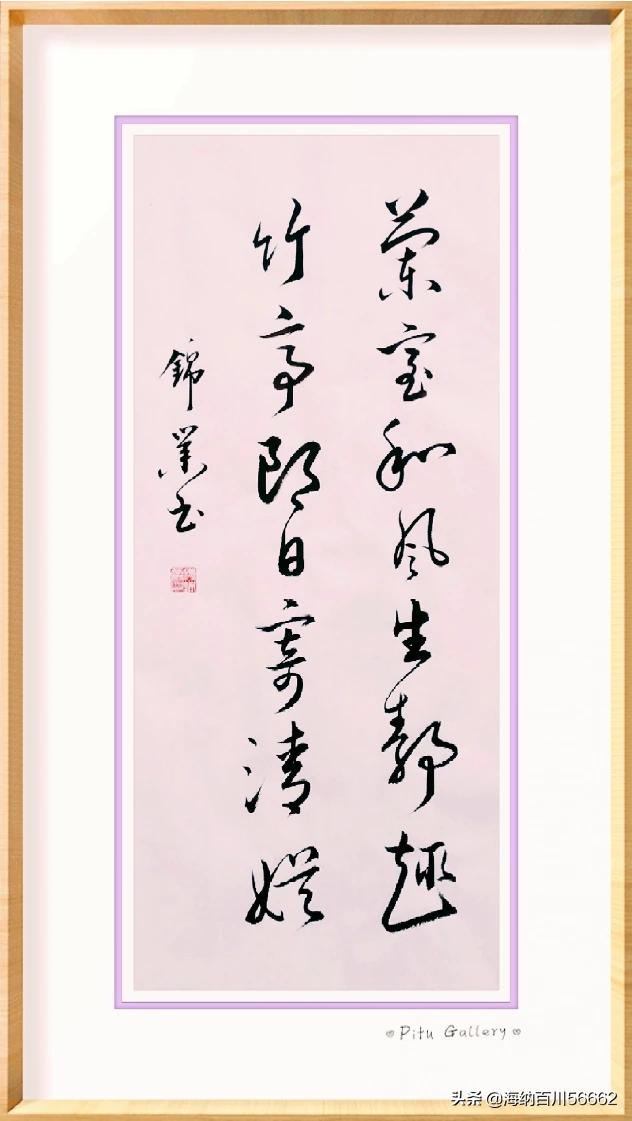 蘭室和風生靜趣
竹亭朗日寄清娛
錦業书
Pitu Gallery
头条 @海纳百川56662